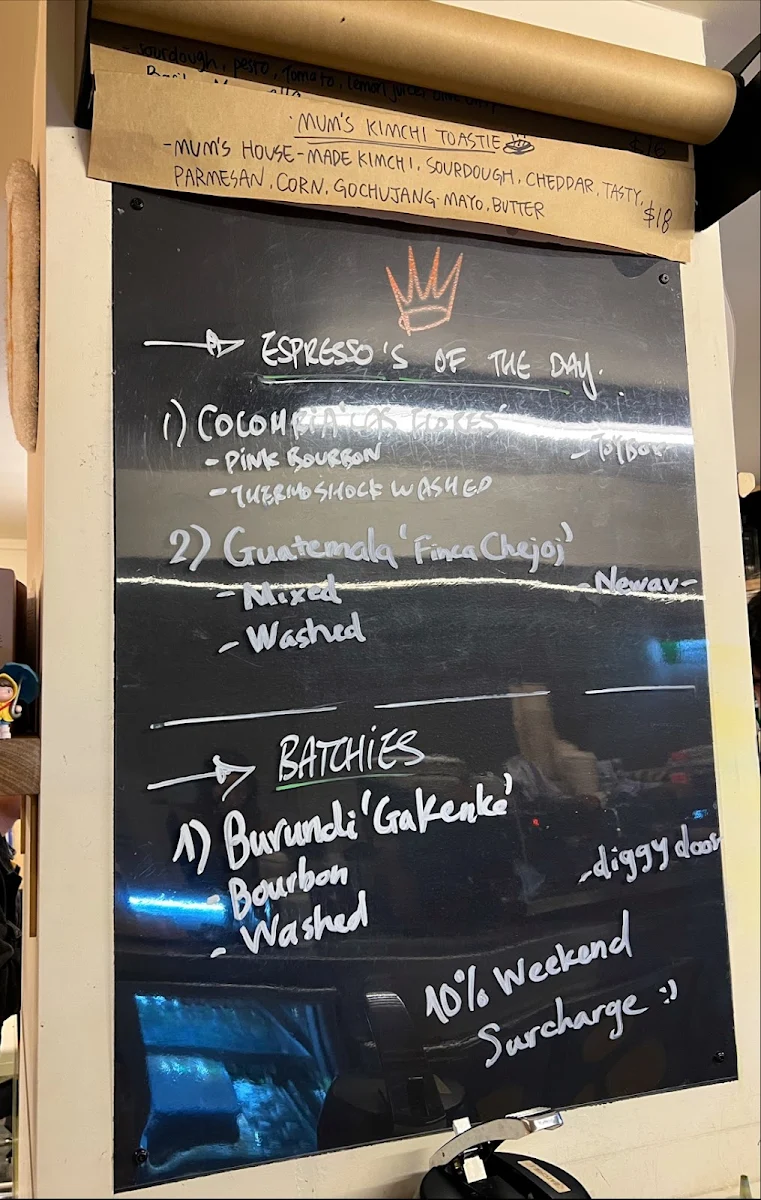 - Sourdough, pesto, Tomato, Lemon juice,
$16
MUM'S KIMCHI TOASTIE
- MUM'S HOUSE-MADE KIMCHI, SOURDOUGH, CHEDDAR, TASTY,
PARMESAN, CORN, GOCHUJANG MAYO, BUTTER
$18
ESPRESSO'S OF THE DAY.
1) COLOMBIA 'LAS FLORES'
- PINK BOURBON
- TOYBOX
- THERMOSHOCK WASHED
2) Guatemala 'Finca Chejoj'
- Mixed
- Newav -
- Washed
BATCHIES
1) Burundi 'Gakenke'
- Bourbon
- diggy doos
- Washed
10% Weekend
Surcharge :)